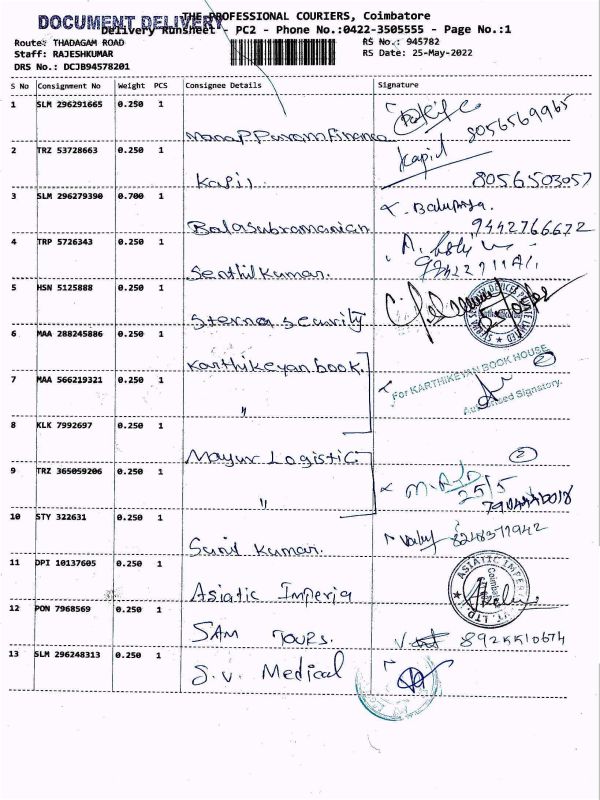 DOCUMENT DELIVERY
THE PROFESSIONAL COURIERS, Coimbatore
Delivery Runsheet - PC2 - Phone No.:0422-3505555 - Page No.:1
Route: THADAGAM ROAD RS No.: 945782
Staff: RAJESHKUMAR RS Date: 25-May-2022
DRS No.: DCJB94578201
S No Consignment No Weight PCS Consignee Details Signature
1 SLM 296291665 0.250 1
Manappuram finance 8056569965
2 TRZ 53728663 0.250 1 Kapil
Kapil 8056503057
3 SLM 296279390 0.700 1
Balasubramanian 9442766672
4 TRP 5726343 0.250 1
Senthil Kumar.
5 HSN 5125888 0.250 1
Sterna Security
6 MAA 288245886 0.250 1
Karthikeyan book.
For KARTHIKEYAN BOOK HOUSE 2
7 MAA 566219321 0.250 1
" Authorised Signatory.
8 KLK 7992697 0.250 1
Mayur Logistic 2
9 TRZ 365059206 0.250 1
" 25/5
10 STY 322631 0.250 1
Sunil Kumar.
11 DPI 10137605 0.250 1
Asiatic Imperia
12 PON 7968569 0.250 1
SAM TOURS.
13 SLM 296248313 0.250 1
S.V. Medical